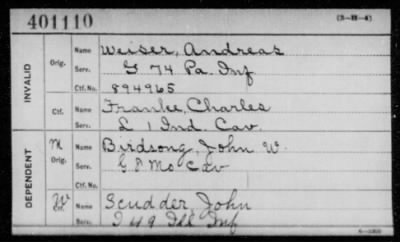 401110
(3-III-4)
INVALID
Orig.
Name Weiser, Andreas
Serv. G 74 Pa Inf
Ctf. No. 894965
Ctf.
Name Franke, Charles
Serv. L 1 Ind. Cav.
DEPENDENT
M
Orig.
Name Birdsong, John W.
Serv. G 8 Mo Cav
Ctf. No.
W
Ctf.
Name Scudder, John
Serv. I 49 Ill Inf